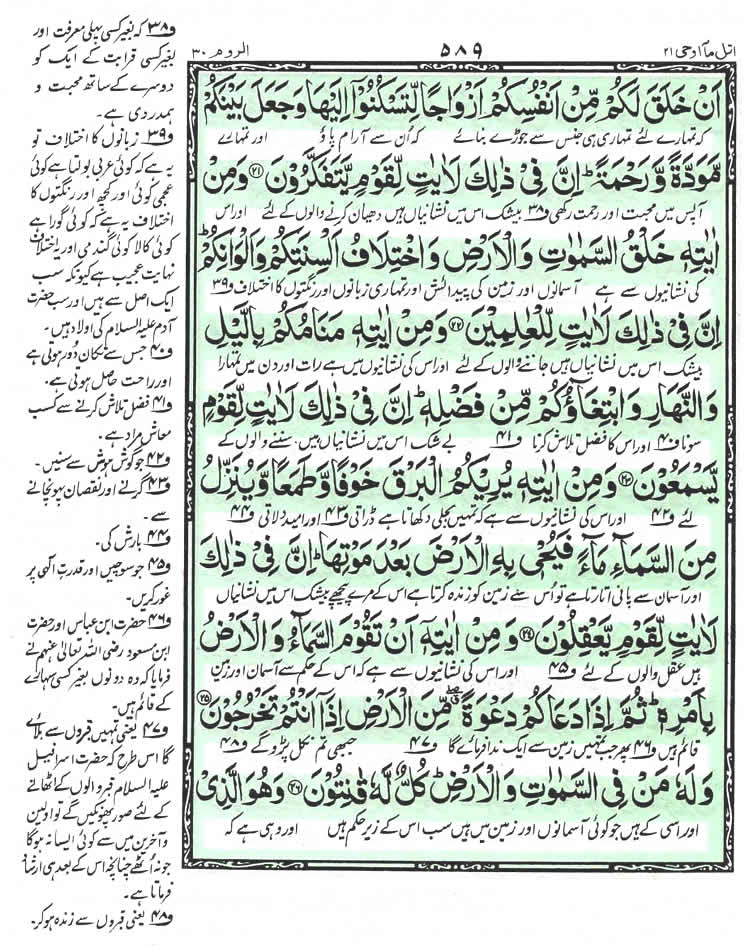 اتل ما اوحی ۲۱
۵۸۹
الروم ۳۰
اَنْ خَلَقَ لَكُمْ مِّنْ اَنْفُسِكُمْ اَزْوَاجًا لِّتَسْكُنُوْۤا اِلَیْهَا وَجَعَلَ بَیْنَكُمْ
کہ تمہارے لئے تمہاری ہی جنس سے جوڑے بنائے کہ اُن سے آرام پاؤ اور تمہارے
مَّوَدَّةً وَّرَحْمَةً ؕ اِنَّ فِیْ ذٰلِكَ لَاٰیٰتٍ لِّقَوْمٍ یَّتَفَكَّرُوْنَ ۲۱ وَمِنْ
آپس میں محبت اور رحمت رکھی ف۳۸ بیشک اس میں نشانیاں ہیں دھیان کرنے والوں کے لئے اور اس
اٰیٰتِهٖ خَلْقُ السَّمٰوٰتِ وَالْاَرْضِ وَاخْتِلَافُ اَلْسِنَتِكُمْ وَاَلْوَانِكُمْ ؕ
کی نشانیوں سے ہے آسمانوں اور زمین کی پیدائش اور تمہاری زبانوں اور رنگتوں کا اختلاف ف۳۹
اِنَّ فِیْ ذٰلِكَ لَاٰیٰتٍ لِّلْعٰلِمِیْنَ ۲۲ وَمِنْ اٰیٰتِهٖ مَنَامُكُمْ بِالَّیْلِ
بیشک اس میں نشانیاں ہیں جاننے والوں کے لئے اور اس کی نشانیوں میں ہے رات اور دن میں تمہارا
وَالنَّهَارِ وَابْتِغَآؤُكُمْ مِّنْ فَضْلِهٖ ؕ اِنَّ فِیْ ذٰلِكَ لَاٰیٰتٍ لِّقَوْمٍ
سونا ف۴۰ اور اس کا فضل تلاش کرنا ف۴۱ بے شک اس میں نشانیاں ہیں سننے والوں کے
یَّسْمَعُوْنَ ۲۳ وَمِنْ اٰیٰتِهٖ یُرِیْكُمُ الْبَرْقَ خَوْفًا وَّطَمَعًا وَّیُنَزِّلُ
لئے ف۴۲ اور اس کی نشانیوں سے ہے کہ تمہیں بجلی دکھاتا ہے ڈراتی ف۴۳ اور امید دلاتی ف۴۴
مِنَ السَّمَآءِ مَآءً فَیُحْیٖ بِهِ الْاَرْضَ بَعْدَ مَوْتِهَا ؕ اِنَّ فِیْ ذٰلِكَ
اور آسمان سے پانی اُتارتا ہے تو اُس سے زمین کو زندہ کرتا ہے اس کے مرے پیچھے بیشک اس میں نشانیاں
لَاٰیٰتٍ لِّقَوْمٍ یَّعْقِلُوْنَ ۲۴ وَمِنْ اٰیٰتِهٖۤ اَنْ تَقُوْمَ السَّمَآءُ وَالْاَرْضُ
ہیں عقل والوں کے لئے ف۴۵ اور اس کی نشانیوں سے ہے کہ اس کے حکم سے آسمان اور زمین
بِاَمْرِهٖ ؕ ثُمَّ اِذَا دَعَاكُمْ دَعْوَةً مِّنَ الْاَرْضِ اِذَاۤ اَنْتُمْ تَخْرُجُوْنَ ۲۵
قائم ہیں ف۴۶ پھر جب تمہیں زمین سے ایک ندا فرمائے گا ف۴۷ جبھی تم نکل پڑو گے ف۴۸
وَلَهٗ مَنْ فِی السَّمٰوٰتِ وَالْاَرْضِ ؕ كُلٌّ لَّهٗ قٰنِتُوْنَ ۲۶ وَهُوَ الَّذِیْ
اور اسی کے ہیں جو کوئی آسمانوں اور زمین میں ہیں سب اس کے زیر حکم ہیں اور وہی ہے کہ
ف۳۸ کہ بغیر کسی پہلی معرفت اور
بغیر کسی قرابت کے ایک کو
دوسرے کے ساتھ محبت و
ہمدردی ہے۔
ف۳۹ زبانوں کا اختلاف تو
یہ ہے کہ کوئی عربی بولتا ہے کوئی
عجمی کوئی اور کچھ اور رنگتوں کا
اختلاف یہ ہے کہ کوئی گورا ہے
کوئی کالا کوئی گندمی اور یہ اختلاف
نہایت عجیب ہے کیونکہ سب
ایک اصل سے ہیں اور سب حضرت
آدم علیہ السلام کی اولاد ہیں۔
ف۴۰ جس سے تکان دُور ہوتی ہے
اور راحت حاصل ہوتی ہے۔
ف۴۱ فضل تلاش کرنے سے کسب
معاش مراد ہے۔
ف۴۲ جو گوش ہوش سے سنیں۔
ف۴۳ گرنے اور نقصان پہونچانے
سے۔
ف۴۴ بارش کی۔
ف۴۵ جو سوچیں اور قدرتِ الٰہی پر
غور کریں۔
ف۴۶ حضرت ابن عباس اور حضرت
ابن مسعود رضی اللہ تعالیٰ عنہم نے
فرمایا کہ وہ دونوں بغیر کسی سہارے
کے قائم ہیں۔
ف۴۷ یعنی تمہیں قبروں سے بلائے
گا اس طرح کہ حضرت اسرافیل
علیہ السلام قبر والوں کے اٹھانے
کے لئے صور پھونکیں گے تو اولین
و آخرین میں سے کوئی ایسا نہ ہوگا
جو نہ اُٹھے چنانچہ اس کے بعد ہی ارشاد
فرماتا ہے۔
ف۴۸ یعنی قبروں سے زندہ ہو کر۔